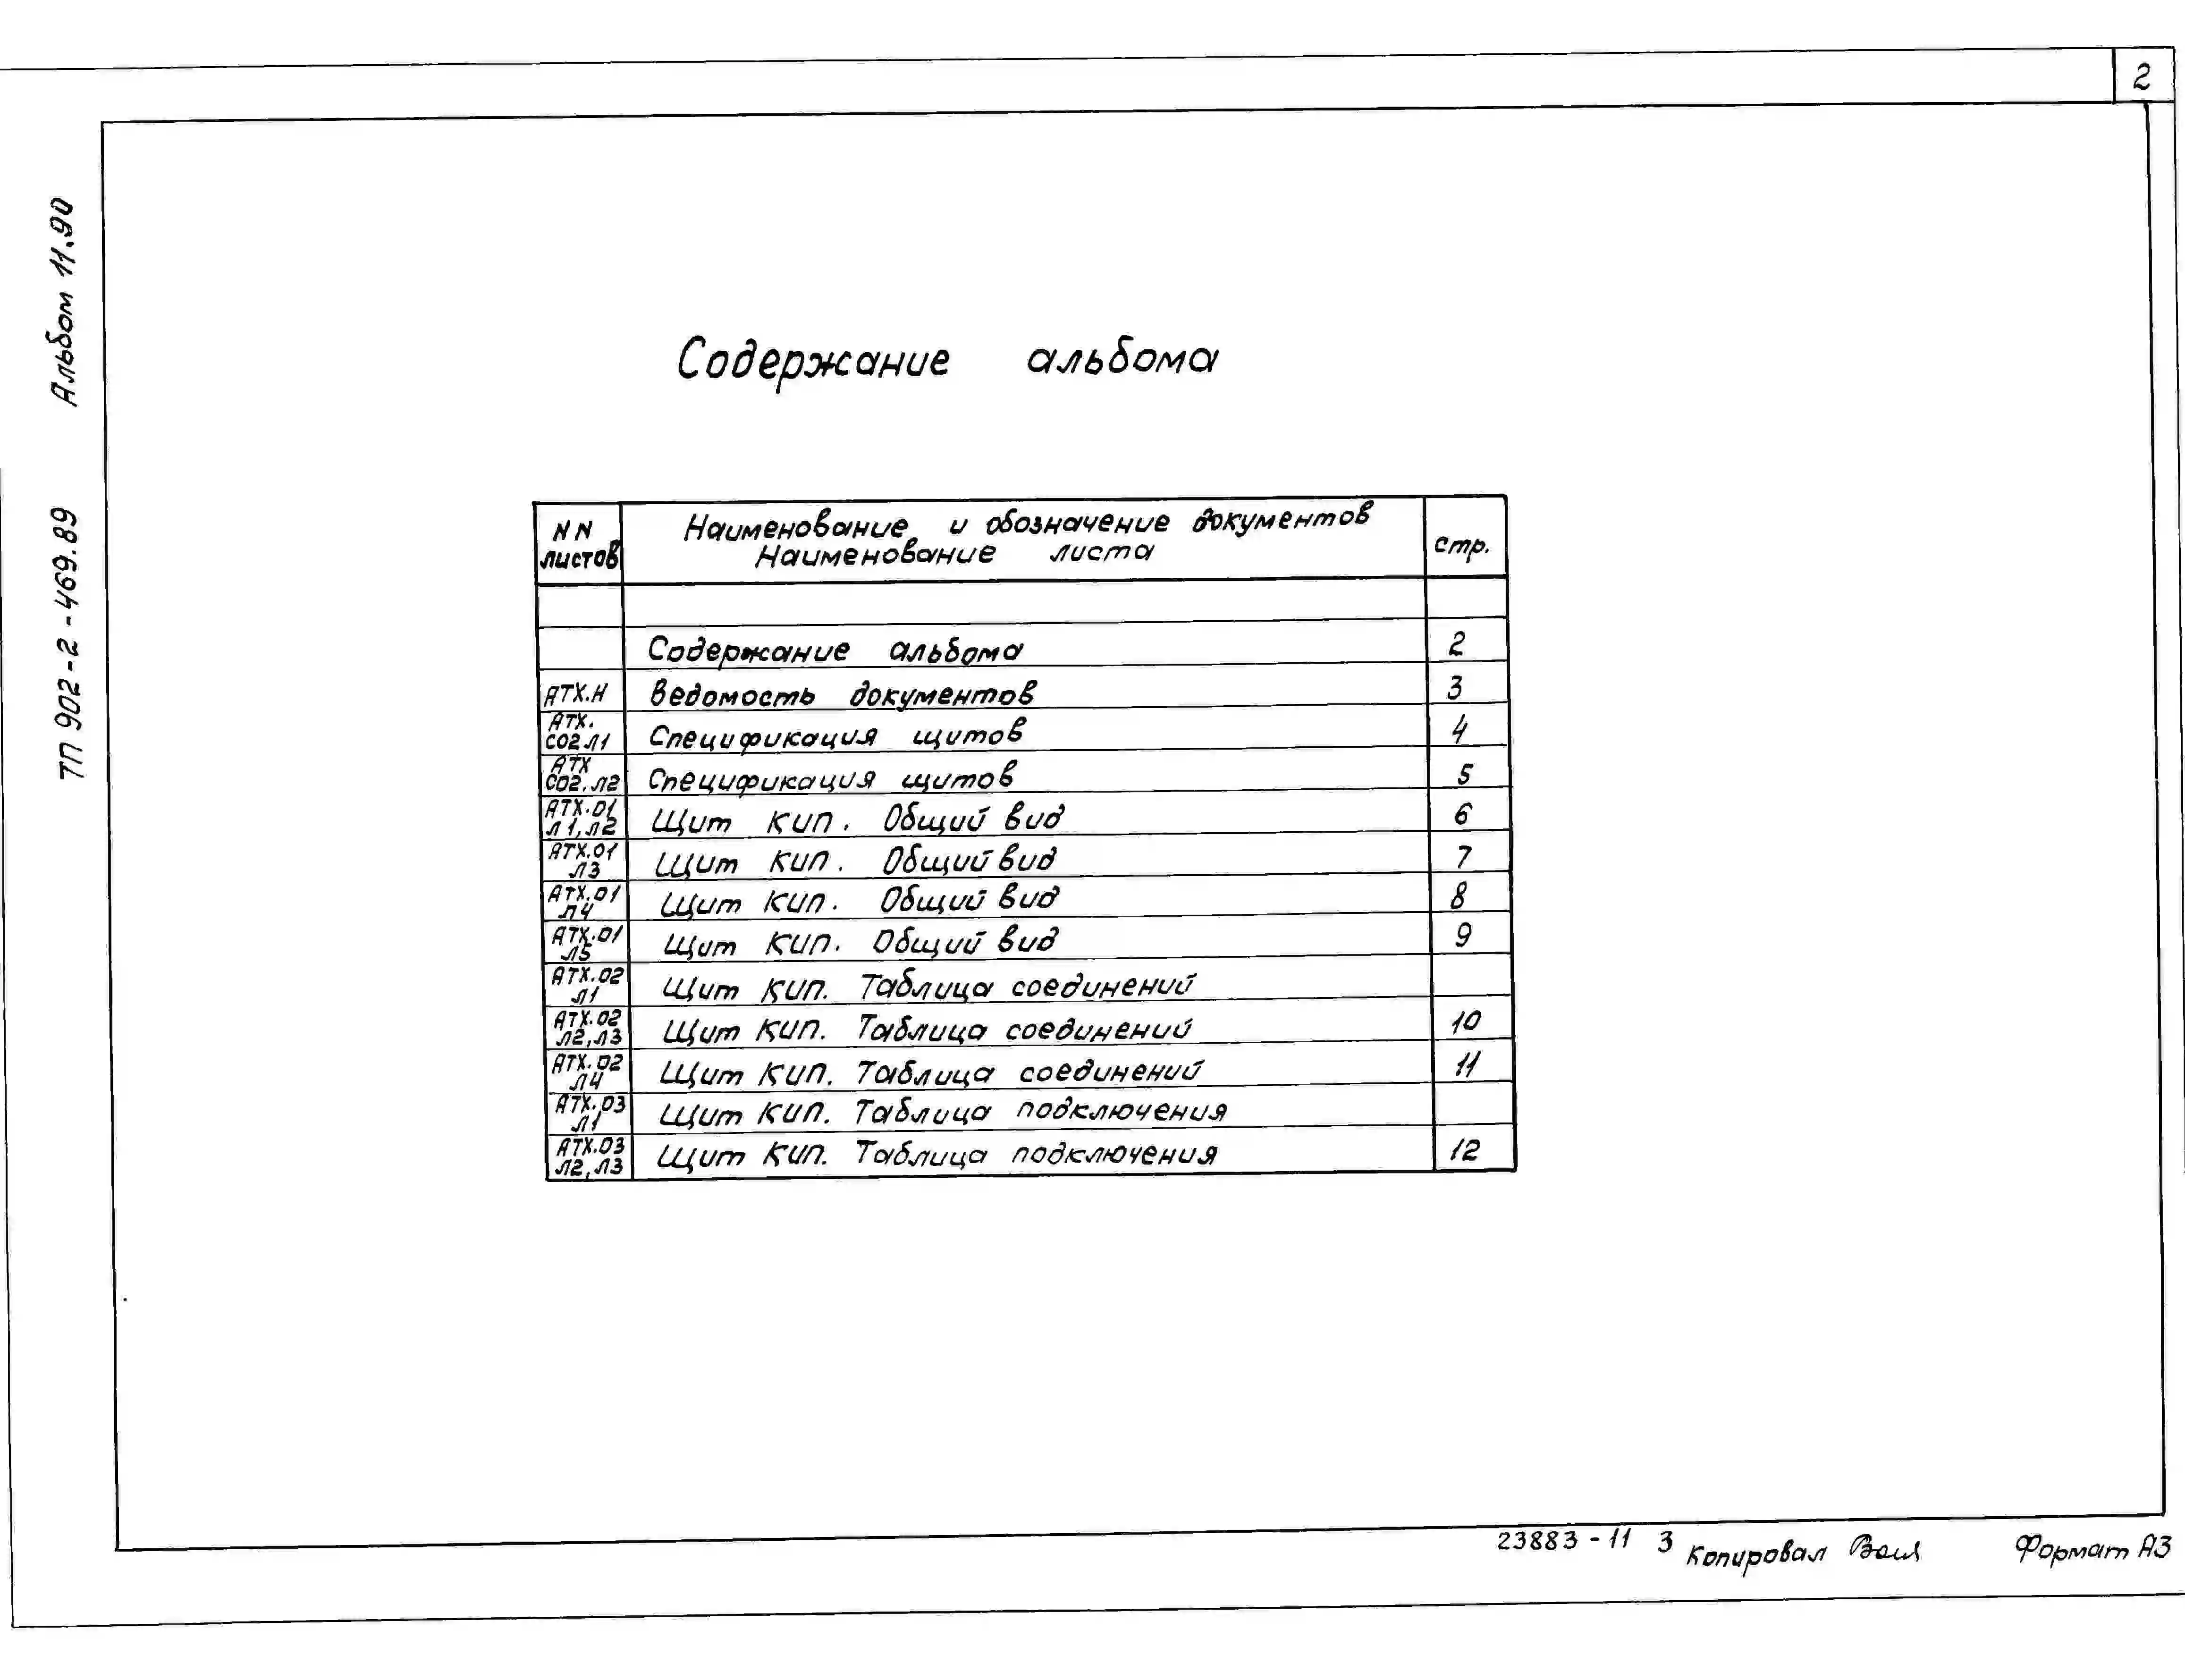 2
Альбом 11.90
ТП 902-2-469.89
Содержание альбома
NN листов
Наименование и обозначение документов
Наименование листа
стр.
Содержание альбома 2
АТХ.Н Ведомость документов 3
АТХ. СО2 Л1 Спецификация щитов 4
АТХ СО2. Л2 Спецификация щитов 5
АТХ.01 Л1, Л2 Щит КИП. Общий вид 6
АТХ.01 Л3 Щит КИП. Общий вид 7
АТХ.01 Л4 Щит КИП. Общий вид 8
АТХ.01 Л5 Щит КИП. Общий вид 9
АТХ.02 Л1 Щит КИП. Таблица соединений
АТХ.02 Л2, Л3 Щит КИП. Таблица соединений 10
АТХ.02 Л4 Щит КИП. Таблица соединений 11
АТХ.03 Л1 Щит КИП. Таблица подключения
АТХ.03 Л2, Л3 Щит КИП. Таблица подключения 12
23883-11 3 Копировал Формат А3